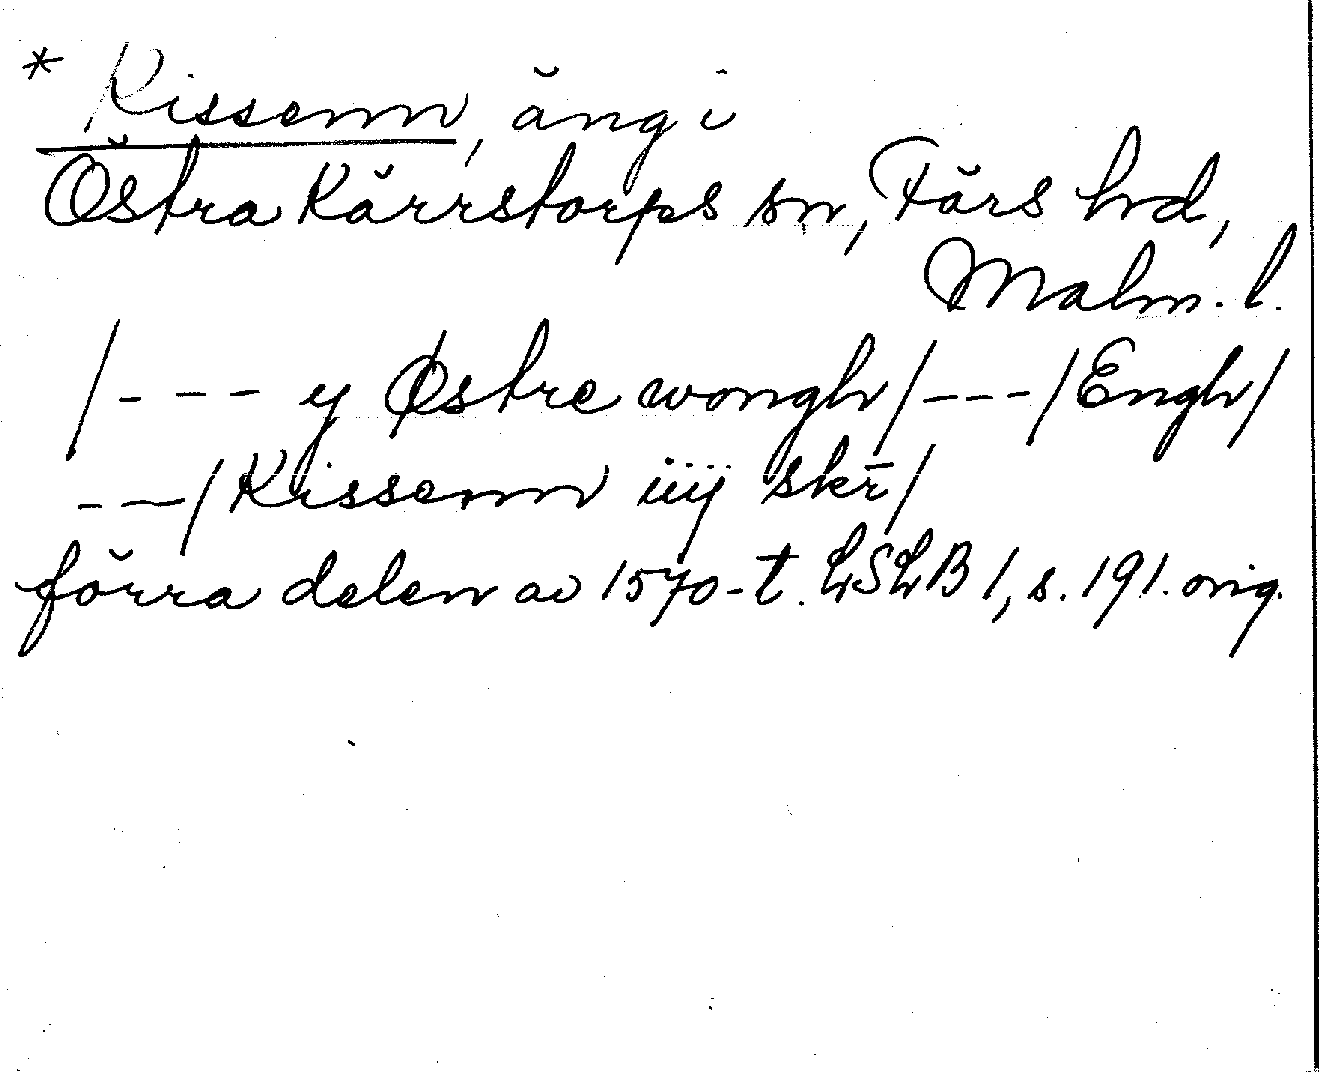 * Kissenn, äng i
Östra Kärrstorps sn, Färs hd,
Malm. l.
/--- y Østre wongh/---/Engh/
---/Kissenn iiij skr̄/
förra delen av 1570-t. LSLB 1, s. 191. orig.